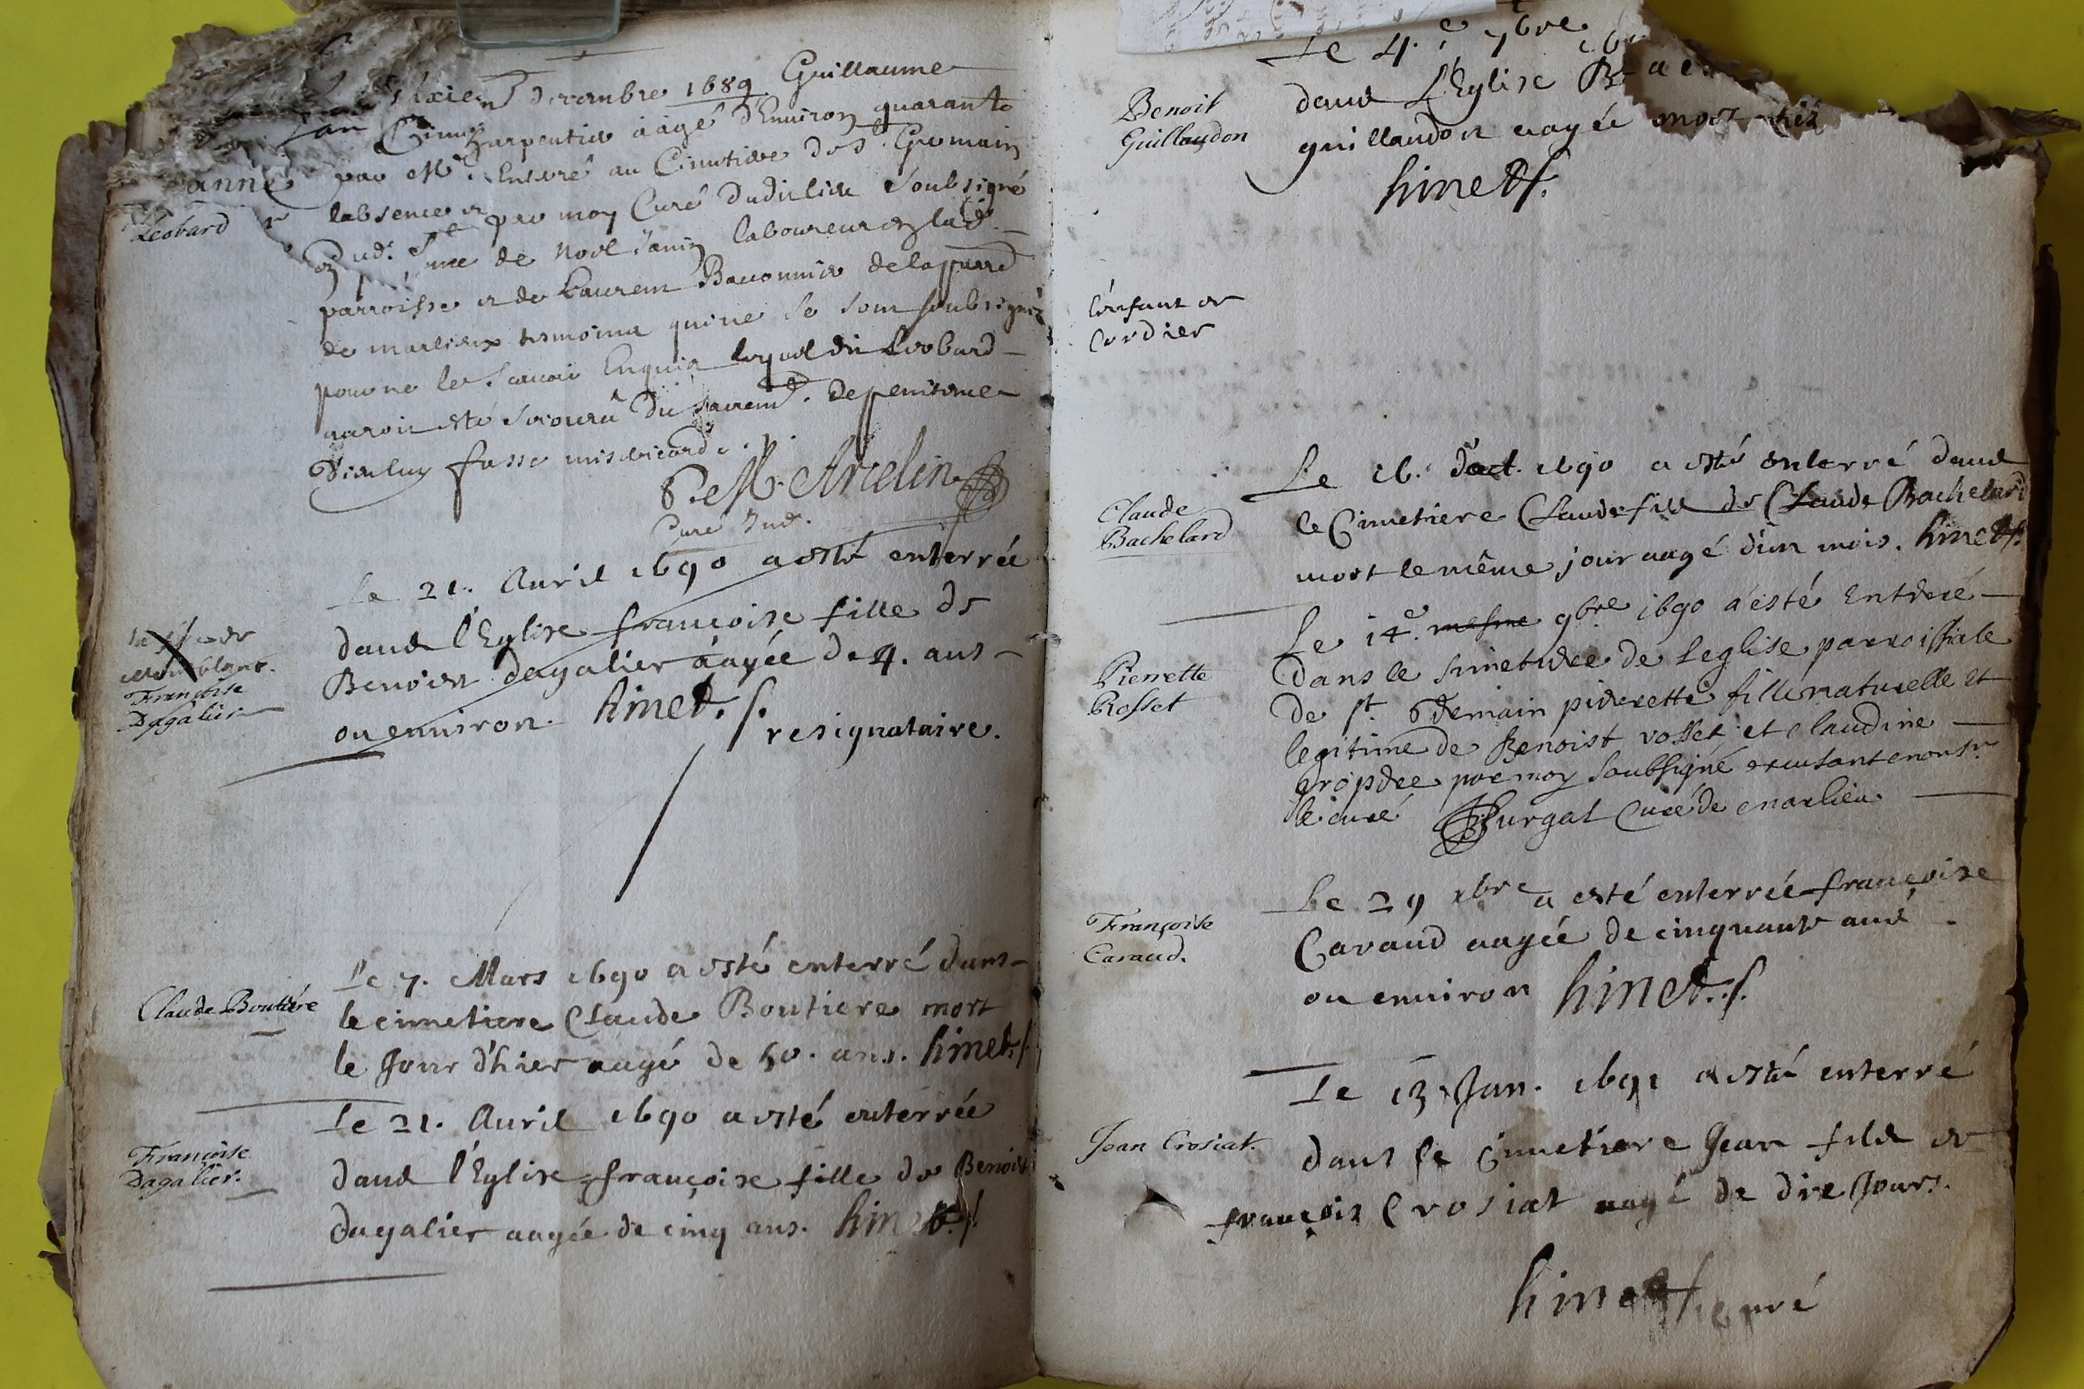 decembre 1689 Guillaume
charpentier aagé d'Environ quarante
Enterré au Cimetiere de St. Germain
Leobard
labsence par moy Curé dudit lieu soubsigné
de Noel Janin laboureur
parroisse et de Laurent Baconnier de la parr.
de marlieux tesmoins qui ne se sont soubsignés
pour ne le scavoir Enquis lequel dit Leobard
esté secouru du sacremt. de penitence
Dieu luy fasse misericorde.
Avelin
Curé
Le 21. Auril 1690 a esté enterrée
dans l'Eglise françoise fille de
Benoist dagalier aagée de 4. ans
ou environ. hinet. s.
resignataire.
Françoise
Dagalier
Claude Boutiére
Le 7. Mars 1690 a esté enterré dans
le cimetiere Claude Boutiere mort
le Jour d'hier aagé de 50. ans. hinet s.
Françoise
Dagalier.
Le 21. Auril 1690 a esté enterrée
dans l'Eglise françoise fille de Benoist
dagalier aagée de cinq ans. hinet s.
Benoit
Guillaudon
Le 4.e 7bre
dans L'Eglise
guillaudon aagée
hinet s.
L'enfant de
Cordier
Claude
Bachelard
Le 16. d'oct. 1690 a esté enterré dans
le Cimetiere Claude fils de Claude Bachelard
mort le même jour aagé d'un mois. hinet s.
Pierrette
Rosset
Le 14e. mesme 9bre 1690 a esté Enterré
Dans le simetiere de Leglise parroissiale
De St. Germain pierrette fille naturelle et
legitime de Benoist rosset et claudine
par moy Soubsigné
le curé Burgat Curé de marlieu
Françoise
Caraud.
Le 29 xbre a esté enterrée françoise
Caraud aagée de cinquante ans
ou environ hinet. s.
Jean Crosiat.
Le 13 Jan. 1691 a esté enterré
dans le cimetiere Jean fils de
françois Crosiat aagé de dix Jours.
hinet curé